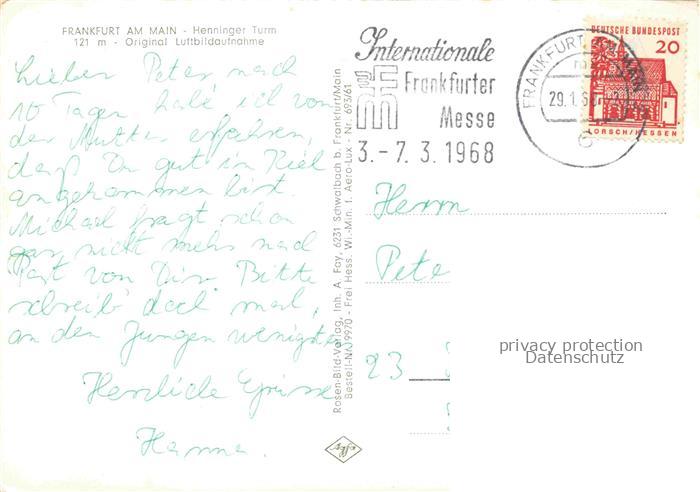 FRANKFURT AM MAIN - Henninger Turm
121 m - Original Luftbildaufnahme
Lieber Peter nach
10 Tagen habe ich von
der Mutter erfahren,
daß Du gut in Kiel
angekommen bist.
Michael fragt schon
gar nicht mehr nach
Post von Dir. Bitte
schreib' doch mal,
an den Jungen wenigstens
Herzliche Grüsse
Hanna.
Rosen-Bild-Verlag, Inh. A. Fay, 6231 Schwalbach b. Frankfurt/Main
Bestell-Nr. 9970 - Frei Hess. Wi.-Min. 1. Aero-Lux - Nr. 693/61
Agfa
Internationale
Frankfurter
Messe
3.-7. 3. 1968
FRANKFURT AM MAIN
29.1.68
DEUTSCHE BUNDESPOST
20
LORSCH/HESSEN
Herrn
Pete
23
privacy protection
Datenschutz